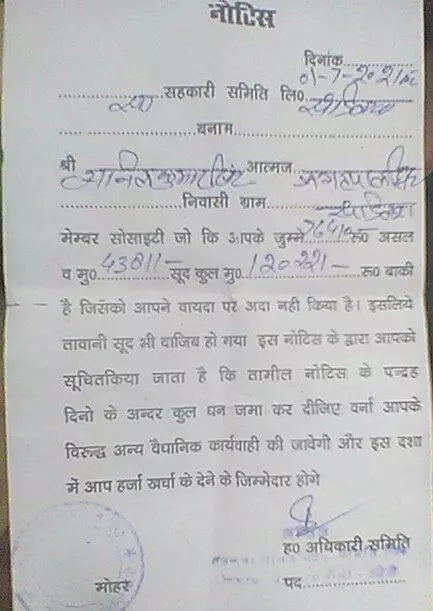 नोटिस
दिनांक
01-7-2021
सहकारी समिति लि०
बनाम
श्री अनिल कुमार सिंह आत्मज जगतपाल सिंह
निवासी ग्राम
मेम्बर सोसाइटी जो कि आपके जुम्मे रू० असल
व मु० 43811 सूद कुल मु० 120221 रू० बाकी
है जिसको आपने वायदा पर अदा नही किया है। इसलिये
तावानी सूद भी वाजिब हो गया इस नोटिस के द्वारा आपको
सूचितकिया जाता है कि तामील नोटिस के पन्द्रह
दिनो के अन्दर कुल धन जमा कर दीजिए वर्ना आपके
विरुद्ध अन्य वैधानिक कार्यवाही की जावेगी और इस दशा
में आप हर्जा खर्चा के देने के जिम्मेदार होगे
ह० अधिकारी समिति
मोहर
पद